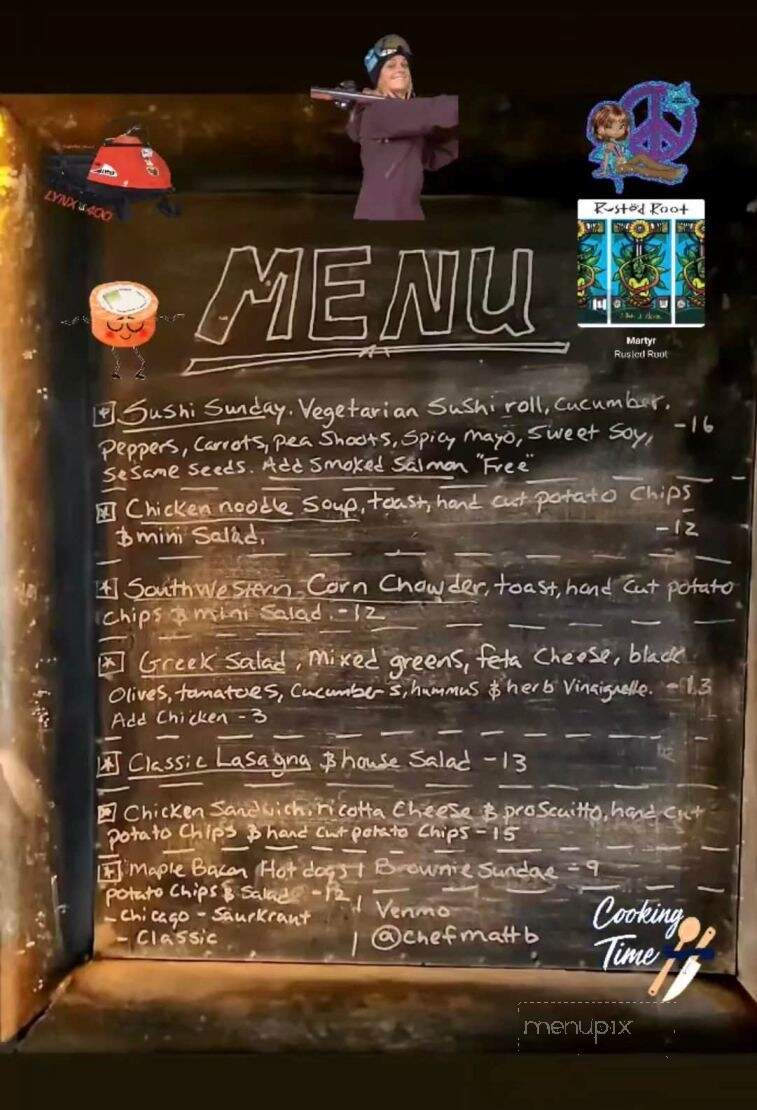 LYNX 400
Rusted Root
Martyr
Rusted Root
MENU
Sushi Sunday. Vegetarian Sushi roll, cucumber,
Peppers, Carrots, Pea Shoots, Spicy mayo, Sweet Soy, -16
Sesame seeds. Add Smoked Salmon "Free"
Chicken noodle Soup, toast, hand cut potato chips
& mini Salad. -12
Southwestern Corn Chowder, toast, hand cut potato
chips & mini Salad. -12
Greek Salad, Mixed greens, feta Cheese, black
Olives, tomatoes, Cucumbers, hummus & herb Vinaigrette. -13
Add Chicken - 3
Classic Lasagna & house Salad - 13
Chicken Sandwich, ricotta Cheese & proscuitto, hand cut
potato Chips & hand cut potato Chips - 15
Maple Bacon Hot dogs
potato Chips & Salad -12
- Chicago - Saurkraut
- Classic
Brownie Sundae - 9
Venmo
@chefmattb
Cooking
Time
menupix